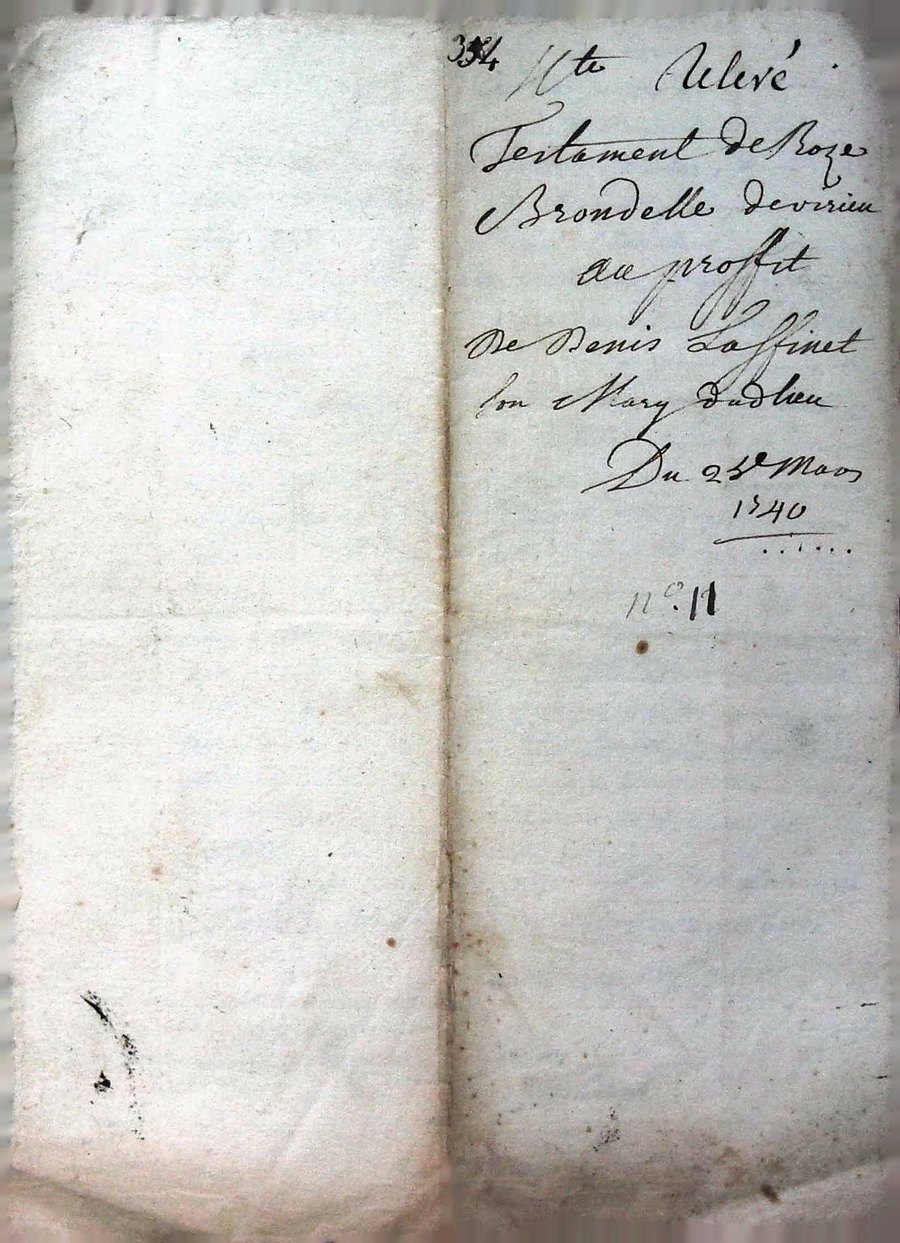 354
nte Relevé
Testament de Roze
Brondelle devirieu
au proffit
De Denis Laffinet
son Mary dudlieu
Du 25e Mars
1740
n°. 11